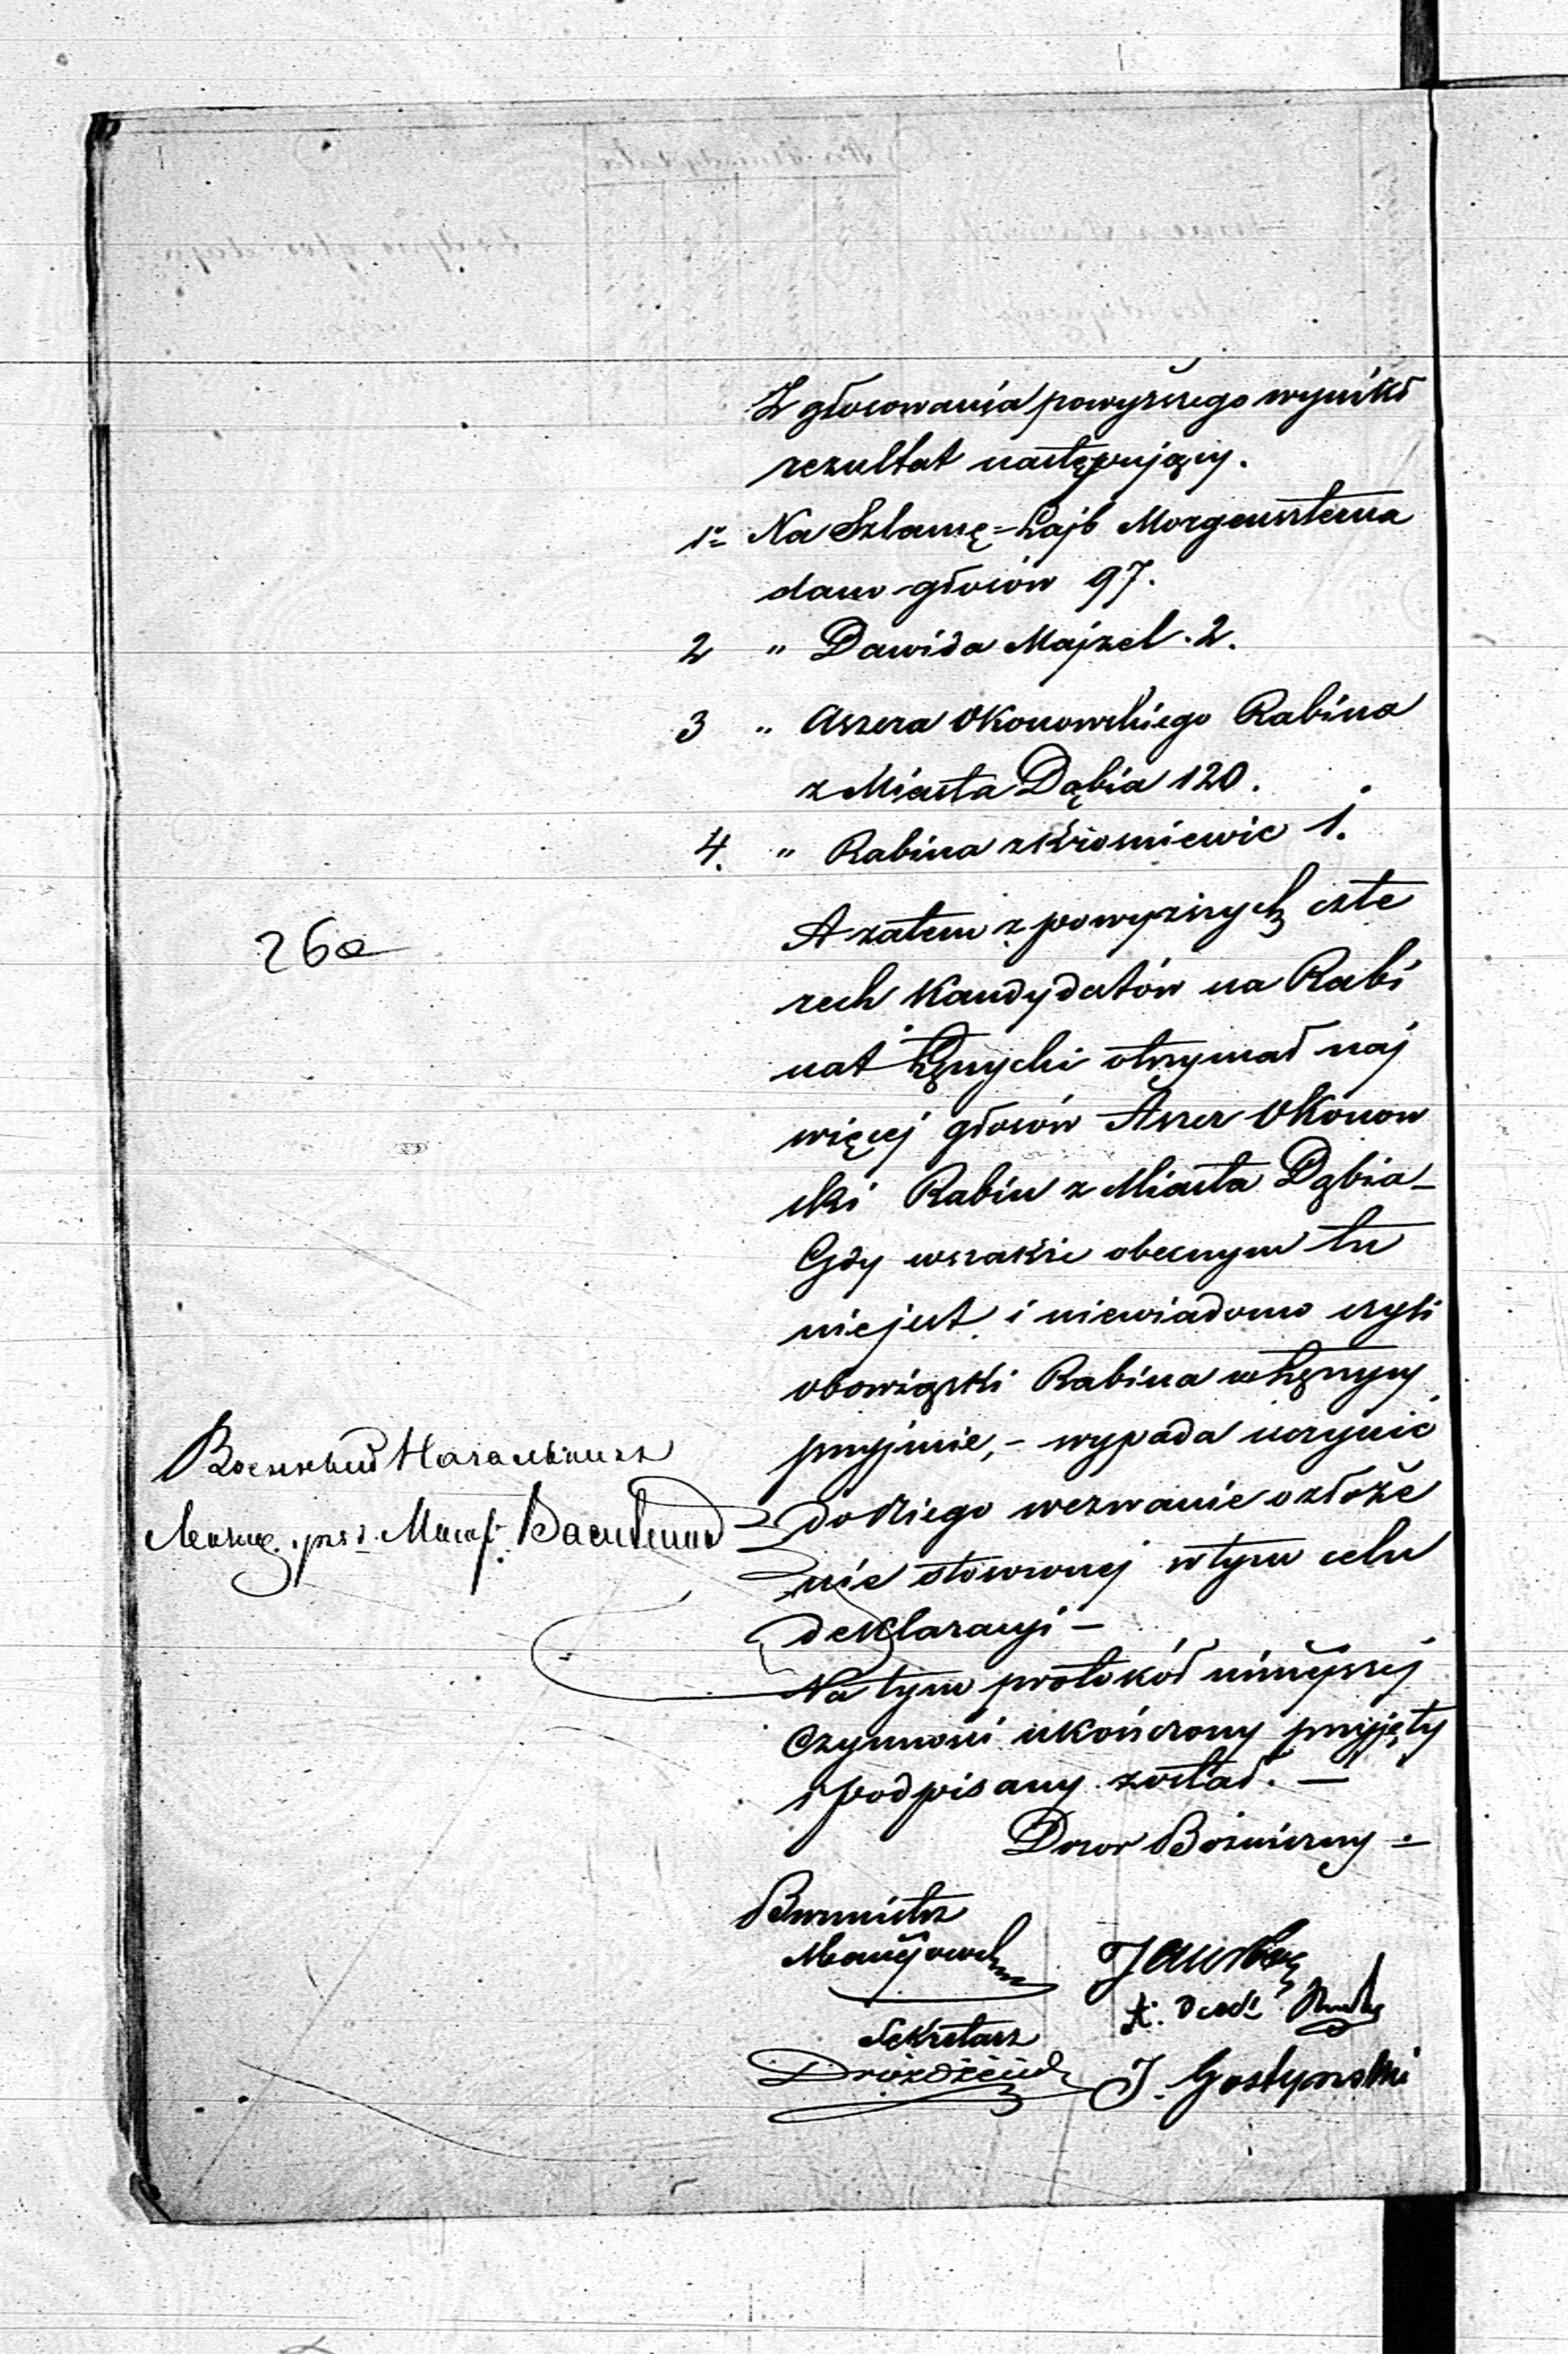 Z głosowania powyższego wynikł
rezultat następujący.
1º Na Szlamę=Lajb Morgenszterna
dano głosów 97.
2 " Dawida Majzel. 2.
3 " Aszera Okonowskiego Rabina
z Miasta Dąbia 120.
4. " Rabina z Krośniewic 1.
A zatem z powyższych czte
rech Kandydatów na Rabi
nat Łęczycki otrzymał naj
więcej głosów Aszer Okonow
ski Rabin z Miasta Dąbia –
Gdy wszakże obecnym tu
niejest i niewiadomo czyli
obowiązki Rabina w Łęczycy
przyjmie, – wypada uczynić
do Niego wezwanie o złoże
nie stosownej w tym celu
deklaracyi –
Na tym protokół niniejszej
Czynności ukończony przyjęty
i podpisany został. –
Dozor Bożniczny –
26a
Военный Начальникъ
Burmistrz
Sekretarz
J. Gostynski